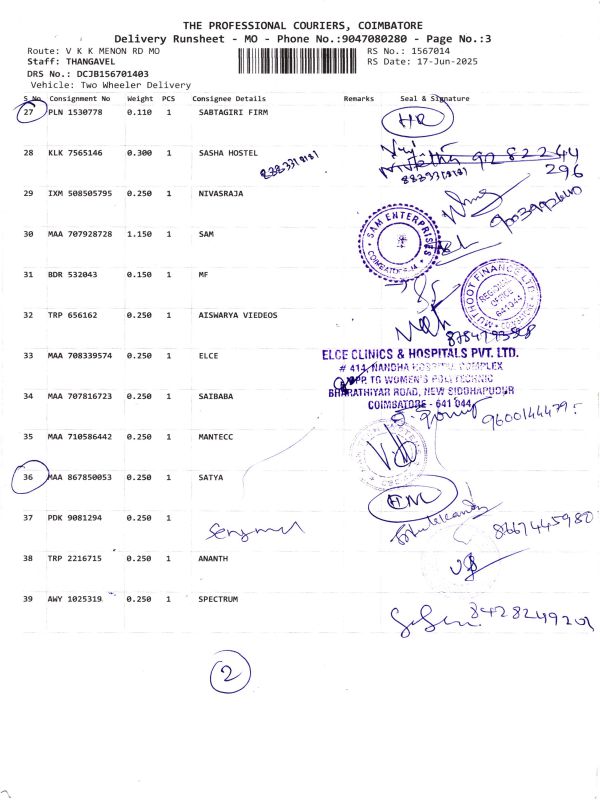 THE PROFESSIONAL COURIERS, COIMBATORE
Delivery Runsheet - MO - Phone No.:9047080280 - Page No.:3
Route: V K K MENON RD MO
RS No.: 1567014
Staff: THANGAVEL
RS Date: 17-Jun-2025
DRS No.: DCJB156701403
Vehicle: Two Wheeler Delivery
S No Consignment No Weight PCS Consignee Details Remarks Seal & Signature
27 PLN 1530778 0.110 1 SABTAGIRI FIRM
HR
28 KLK 7565146 0.300 1 SASHA HOSTEL
9282244
296
29 IXM 508505795 0.250 1 NIVASRAJA
30 MAA 707928728 1.150 1 SAM
SAM ENTERPRISES
COIMBATORE
31 BDR 532043 0.150 1 MF
MUTHOOT FINANCE LTD
REGIONAL
OFFICE
641044
32 TRP 656162 0.250 1 AISWARYA VIEDEOS
33 MAA 708339574 0.250 1 ELCE
ELCE CLINICS & HOSPITALS PVT. LTD.
# 414, NANDHA HOSPITAL COMPLEX
OPP. TO WOMEN'S POLYTECHNIC
BHARATHIYAR ROAD, NEW SIDDHAPUDUR
COIMBATORE - 641 044
34 MAA 707816723 0.250 1 SAIBABA
9600144479
35 MAA 710586442 0.250 1 MANTECC
36 MAA 867850053 0.250 1 SATYA
HM
37 PDK 9081294 0.250 1
8667445980
38 TRP 2216715 0.250 1 ANANTH
39 AWY 1025319 0.250 1 SPECTRUM
8428249201
2